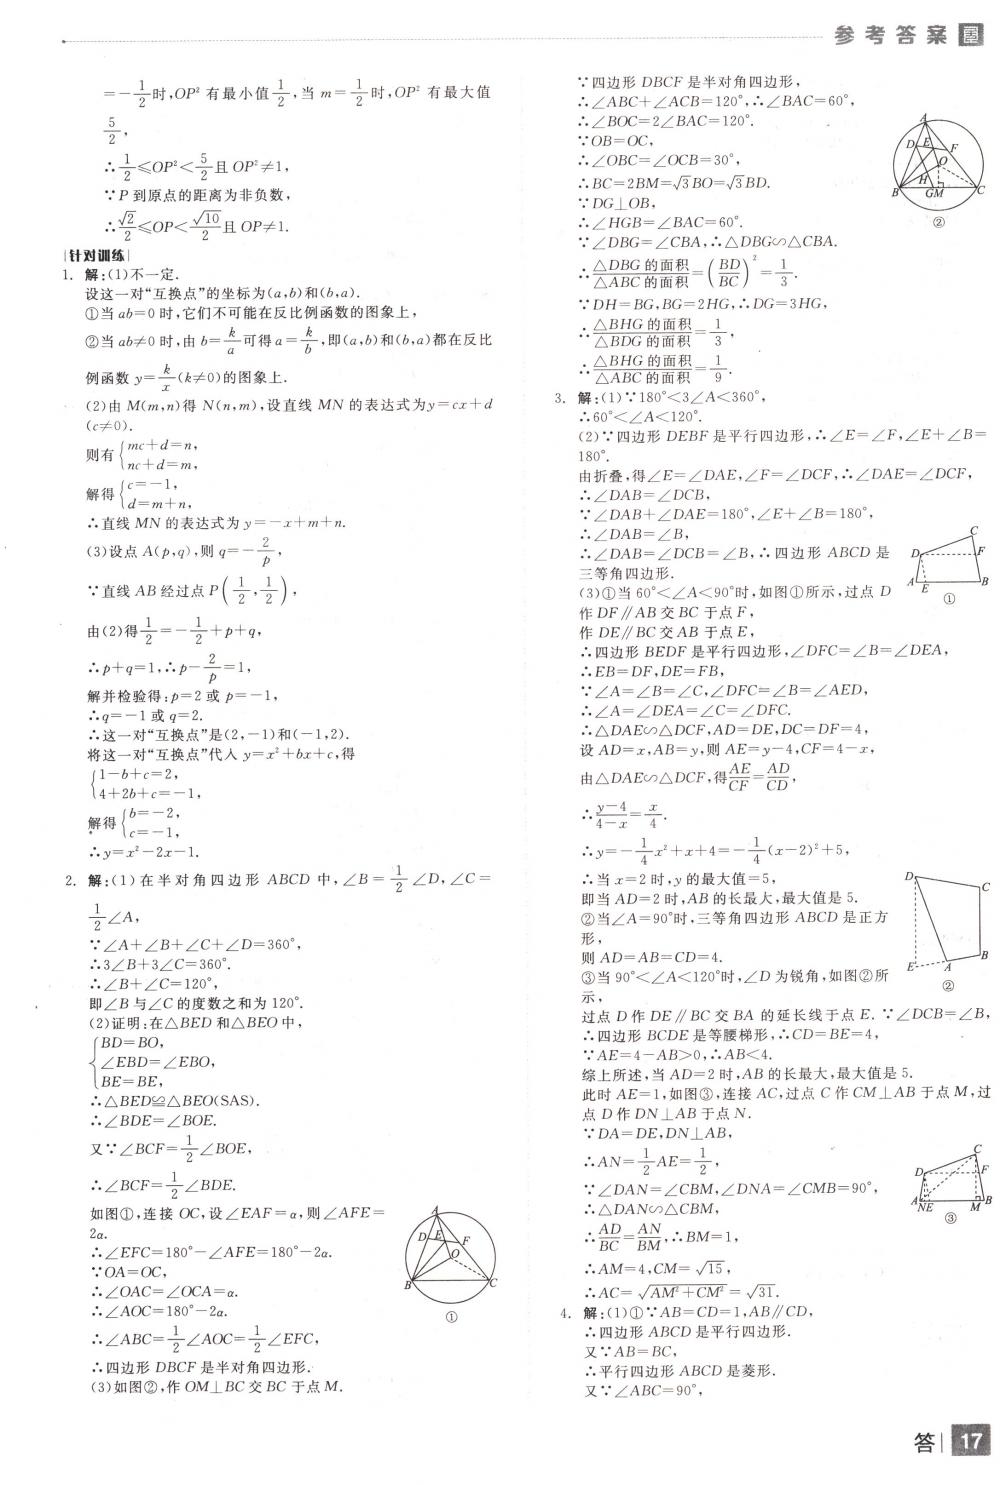 参考答案
=-1/2时,OP²有最小值1/2,当m=1/2时,OP²有最大值
5/2,
∴1/2≤OP²<5/2且OP²≠1,
∵P到原点的距离为非负数,
∴√2/2≤OP<√10/2且OP≠1.
|针对训练|
1. 解:(1)不一定.
设这一对“互换点”的坐标为(a,b)和(b,a).
①当ab=0时,它们不可能在反比例函数的图象上,
②当ab≠0时,由b=k/a可得a=k/b,即(a,b)和(b,a)都在反比
例函数y=k/x(k≠0)的图象上.
(2)由M(m,n)得N(n,m),设直线MN的表达式为y=cx+d
(c≠0).
则有{mc+d=n,
nc+d=m,
解得{c=-1,
d=m+n,
∴直线MN的表达式为y=-x+m+n.
(3)设点A(p,q),则q=-2/p,
∵直线AB经过点P(1/2,1/2),
由(2)得1/2=-1/2+p+q,
∴p+q=1,∴p-2/p=1,
解并检验得:p=2或p=-1,
∴q=-1或q=2.
∴这一对“互换点”是(2,-1)和(-1,2).
将这一对“互换点”代入y=x²+bx+c,得
{1-b+c=2,
4+2b+c=-1,
解得{b=-2,
c=-1,
∴y=x²-2x-1.
2. 解:(1)在半对角四边形ABCD中,∠B=1/2∠D,∠C=
1/2∠A,
∵∠A+∠B+∠C+∠D=360°,
∴3∠B+3∠C=360°.
∴∠B+∠C=120°,
即∠B与∠C的度数之和为120°.
(2)证明:在△BED和△BEO中,
{BD=BO,
∠EBD=∠EBO,
BE=BE,
∴△BED≌△BEO(SAS).
∴∠BDE=∠BOE.
又∵∠BCF=1/2∠BOE,
∴∠BCF=1/2∠BDE.
如图①,连接OC,设∠EAF=α,则∠AFE=
2α.
∴∠EFC=180°-∠AFE=180°-2α.
∵OA=OC,
∴∠OAC=∠OCA=α.
∴∠AOC=180°-2α.
∴∠ABC=1/2∠AOC=1/2∠EFC,
∴四边形DBCF是半对角四边形.
(3)如图②,作OM⊥BC交BC于点M.
A
D E F
O
B C
①
∵四边形DBCF是半对角四边形,
∴∠ABC+∠ACB=120°,∴∠BAC=60°,
∴∠BOC=2∠BAC=120°.
∵OB=OC,
∴∠OBC=∠OCB=30°,
∴BC=2BM=√3BO=√3BD.
∵DG⊥OB,
∴∠HGB=∠BAC=60°.
∵∠DBG=∠CBA,∴△DBG∽△CBA.
∴△DBG的面积/△ABC的面积=(BD/BC)²=1/3.
∵DH=BG,BG=2HG,∴DG=3HG,
∴△BHG的面积/△BDG的面积=1/3,
∴△BHG的面积/△ABC的面积=1/9.
A
D E F
O
H
B GM C
②
3. 解:(1)∵180°<3∠A<360°,
∴60°<∠A<120°.
(2)∵四边形DEBF是平行四边形,∴∠E=∠F,∠E+∠B=
180°.
由折叠,得∠E=∠DAE,∠F=∠DCF,∴∠DAE=∠DCF,
∴∠DAB=∠DCB,
∵∠DAB+∠DAE=180°,∠E+∠B=180°,
∴∠DAB=∠B,
∴∠DAB=∠DCB=∠B,∴四边形ABCD是
三等角四边形.
(3)①当60°<∠A<90°时,如图①所示,过点D
作DF∥AB交BC于点F,
作DE∥BC交AB于点E,
∴四边形BEDF是平行四边形,∠DFC=∠B=∠DEA,
∴EB=DF,DE=FB,
∵∠A=∠B=∠C,∠DFC=∠B=∠AED,
∴∠A=∠DEA=∠C=∠DFC.
∴△DAE∽△DCF,AD=DE,DC=DF=4,
设AD=x,AB=y,则AE=y-4,CF=4-x,
由△DAE∽△DCF,得AE/CF=AD/CD,
∴(y-4)/(4-x)=x/4.
∴y=-1/4x²+x+4=-1/4(x-2)²+5,
∴当x=2时,y的最大值=5,
即当AD=2时,AB的长最大,最大值是5.
②当∠A=90°时,三等角四边形ABCD是正方
形,
则AD=AB=CD=4.
③当90°<∠A<120°时,∠D为锐角,如图②所
示,
过点D作DE∥BC交BA的延长线于点E.∵∠DCB=∠B,
∴四边形BCDE是等腰梯形,∴CD=BE=4,
∵AE=4-AB>0,∴AB<4.
综上所述,当AD=2时,AB的长最大,最大值是5.
此时AE=1,如图③,连接AC,过点C作CM⊥AB于点M,过
点D作DN⊥AB于点N.
∵DA=DE,DN⊥AB,
∴AN=1/2AE=1/2,
∵∠DAN=∠CBM,∠DNA=∠CMB=90°,
∴△DAN∽△CBM,
∴AD/BC=AN/BM,∴BM=1,
∴AM=4,CM=√15,
∴AC=√(AM²+CM²)=√31.
C
D F
A E B
①
D C
E A B
②
C
D F
A NE M B
③
4. 解:(1)①∵AB=CD=1,AB∥CD,
∴四边形ABCD是平行四边形.
又∵AB=BC,
∴平行四边形ABCD是菱形.
又∵∠ABC=90°,
答 17